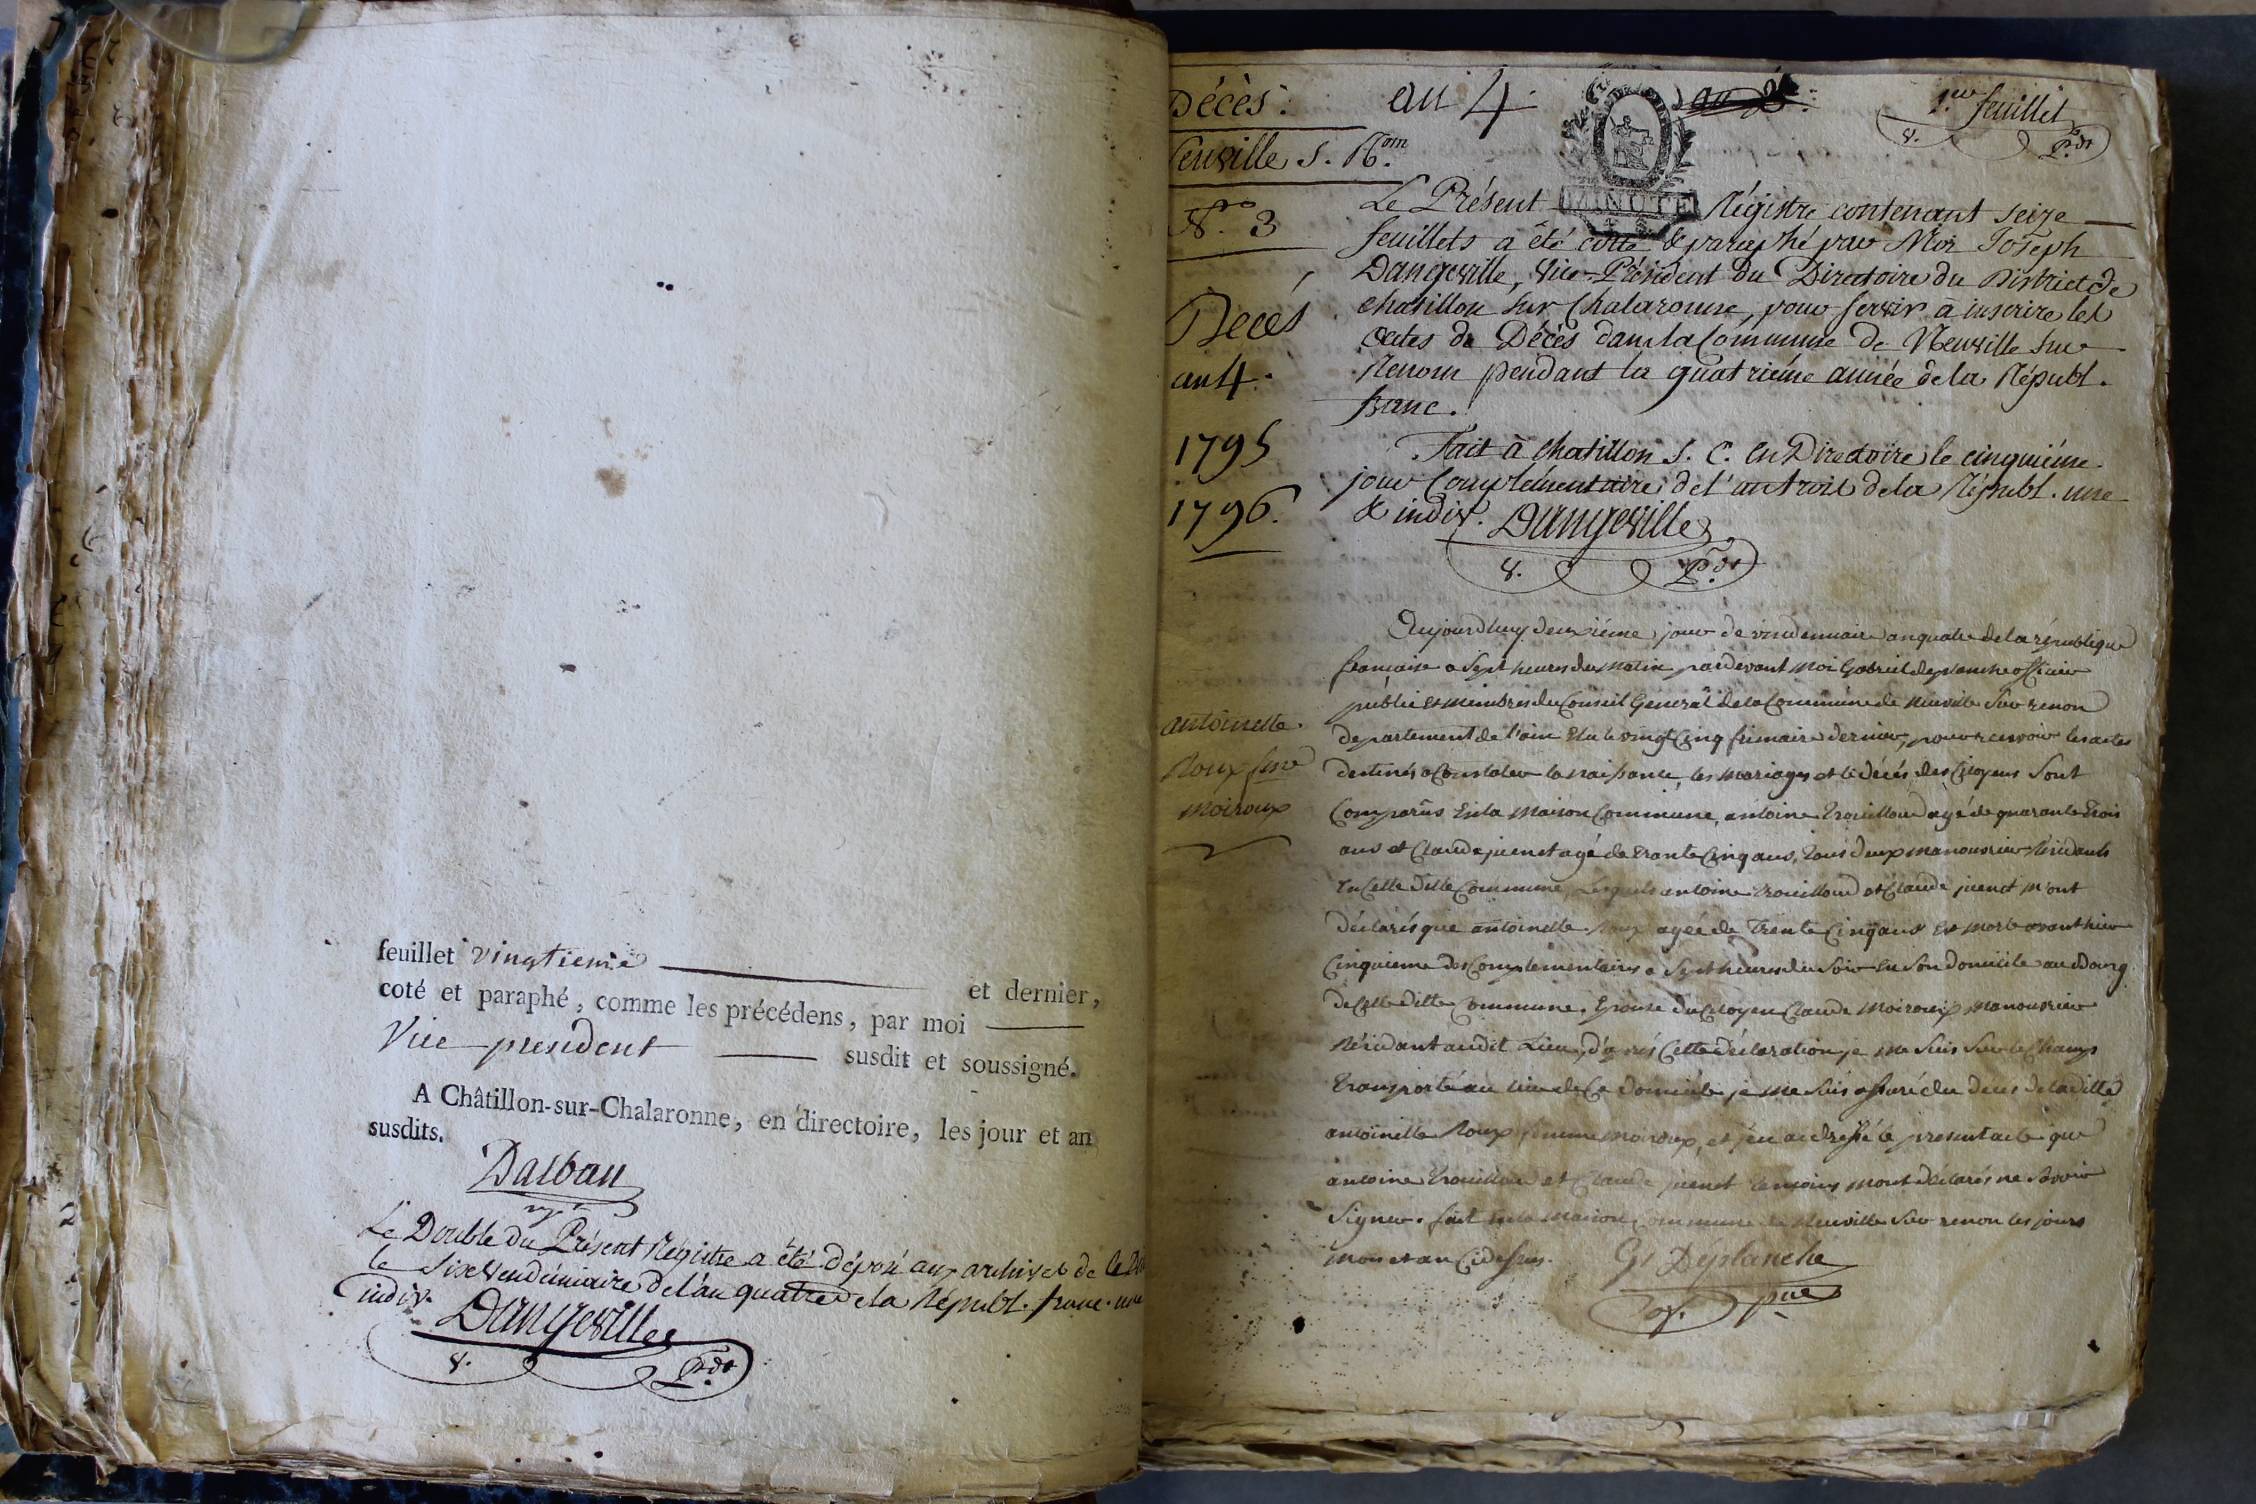 feuillet vingtieme et dernier,
coté et paraphé, comme les précédens, par moi
Vice president susdit et soussigné.
A Châtillon-sur-Chalaronne, en directoire, les jour et an
susdits.
Dalban
Le Double du Présent Régistre a été déposé aux archives de le
le Six Vendémiaire de l'an quatre de la Républ. franc. une
indiv. Dangeville
v. Pdt
Décès. an 4. 1.er feuillet
v. Pdt
Neuville S. R.om
MINUTE
N.ro 3
Décés
an 4.
1795
1796.
Le Présent Régistre contenant seize
feuillets a été cotté & paraphé par Moi Joseph
Dangeville, Vice-Président du Directoire du District de
Chatillon sur Chalaronne, pour servir à inscrire les
actes de Décès dans la Commune de Neuville sur
Renom pendant la quatriéme année de la Républ.
franc.
Fait à Chatillon S. C. en Directoire le cinquiéme
jour Complémentaire de l'an trois de la Républ. une
& indiv. Dangeville
v. Pdt
antoinette
Roux fme
Moiroux
Aujourdhuy deuxiéme jour de vendemiaire an quatre de la république
française a Sept heures du Matin pardevant Moi Gabriel deplanche officier
public et membres du Conseil Général de la Commune de Neuville Sur renon
departement de l'ain Elu le vingt Cinq frimaire dernier, pour recevoir les actes
destinés a Constater la naissance, les Mariages et le décés des Citoyens Sont
Comparûs En la Maison Commune, antoine Trouilloud agé de quarante trois
ans et Claude juenet agé de trante Cinq ans, tous deux manouvrier Résidants
En Cette ditte Commune, Lesquels antoine Trouilloud et Claude juenet m'ont
Déclarés que antoinette Roux agée de Trente Cinq ans Est morte avant hier
Cinquieme des Complementaires a Sept heures du Soir En Son Domicile au Bourg
de Cette ditte Commune, Epouse du Citoyen Claude Moiroux Manouvrier
Résidant audit Lieu, d'aprés Cette déclaration je me Suis Sur le Champ
transporté au lieu de Ce domicile je me Suis assuré du deces de la ditte
antoinette Roux femme moiroux, et j'en ai dressé le present acte que
antoine Trouilloud et Claude juenet temoins mont déclarés ne Savoir
Signer. fait En la Maison Commune de Neuville Sur renon les jours
mois et an Cidessus. G. Déplanche
of. pue